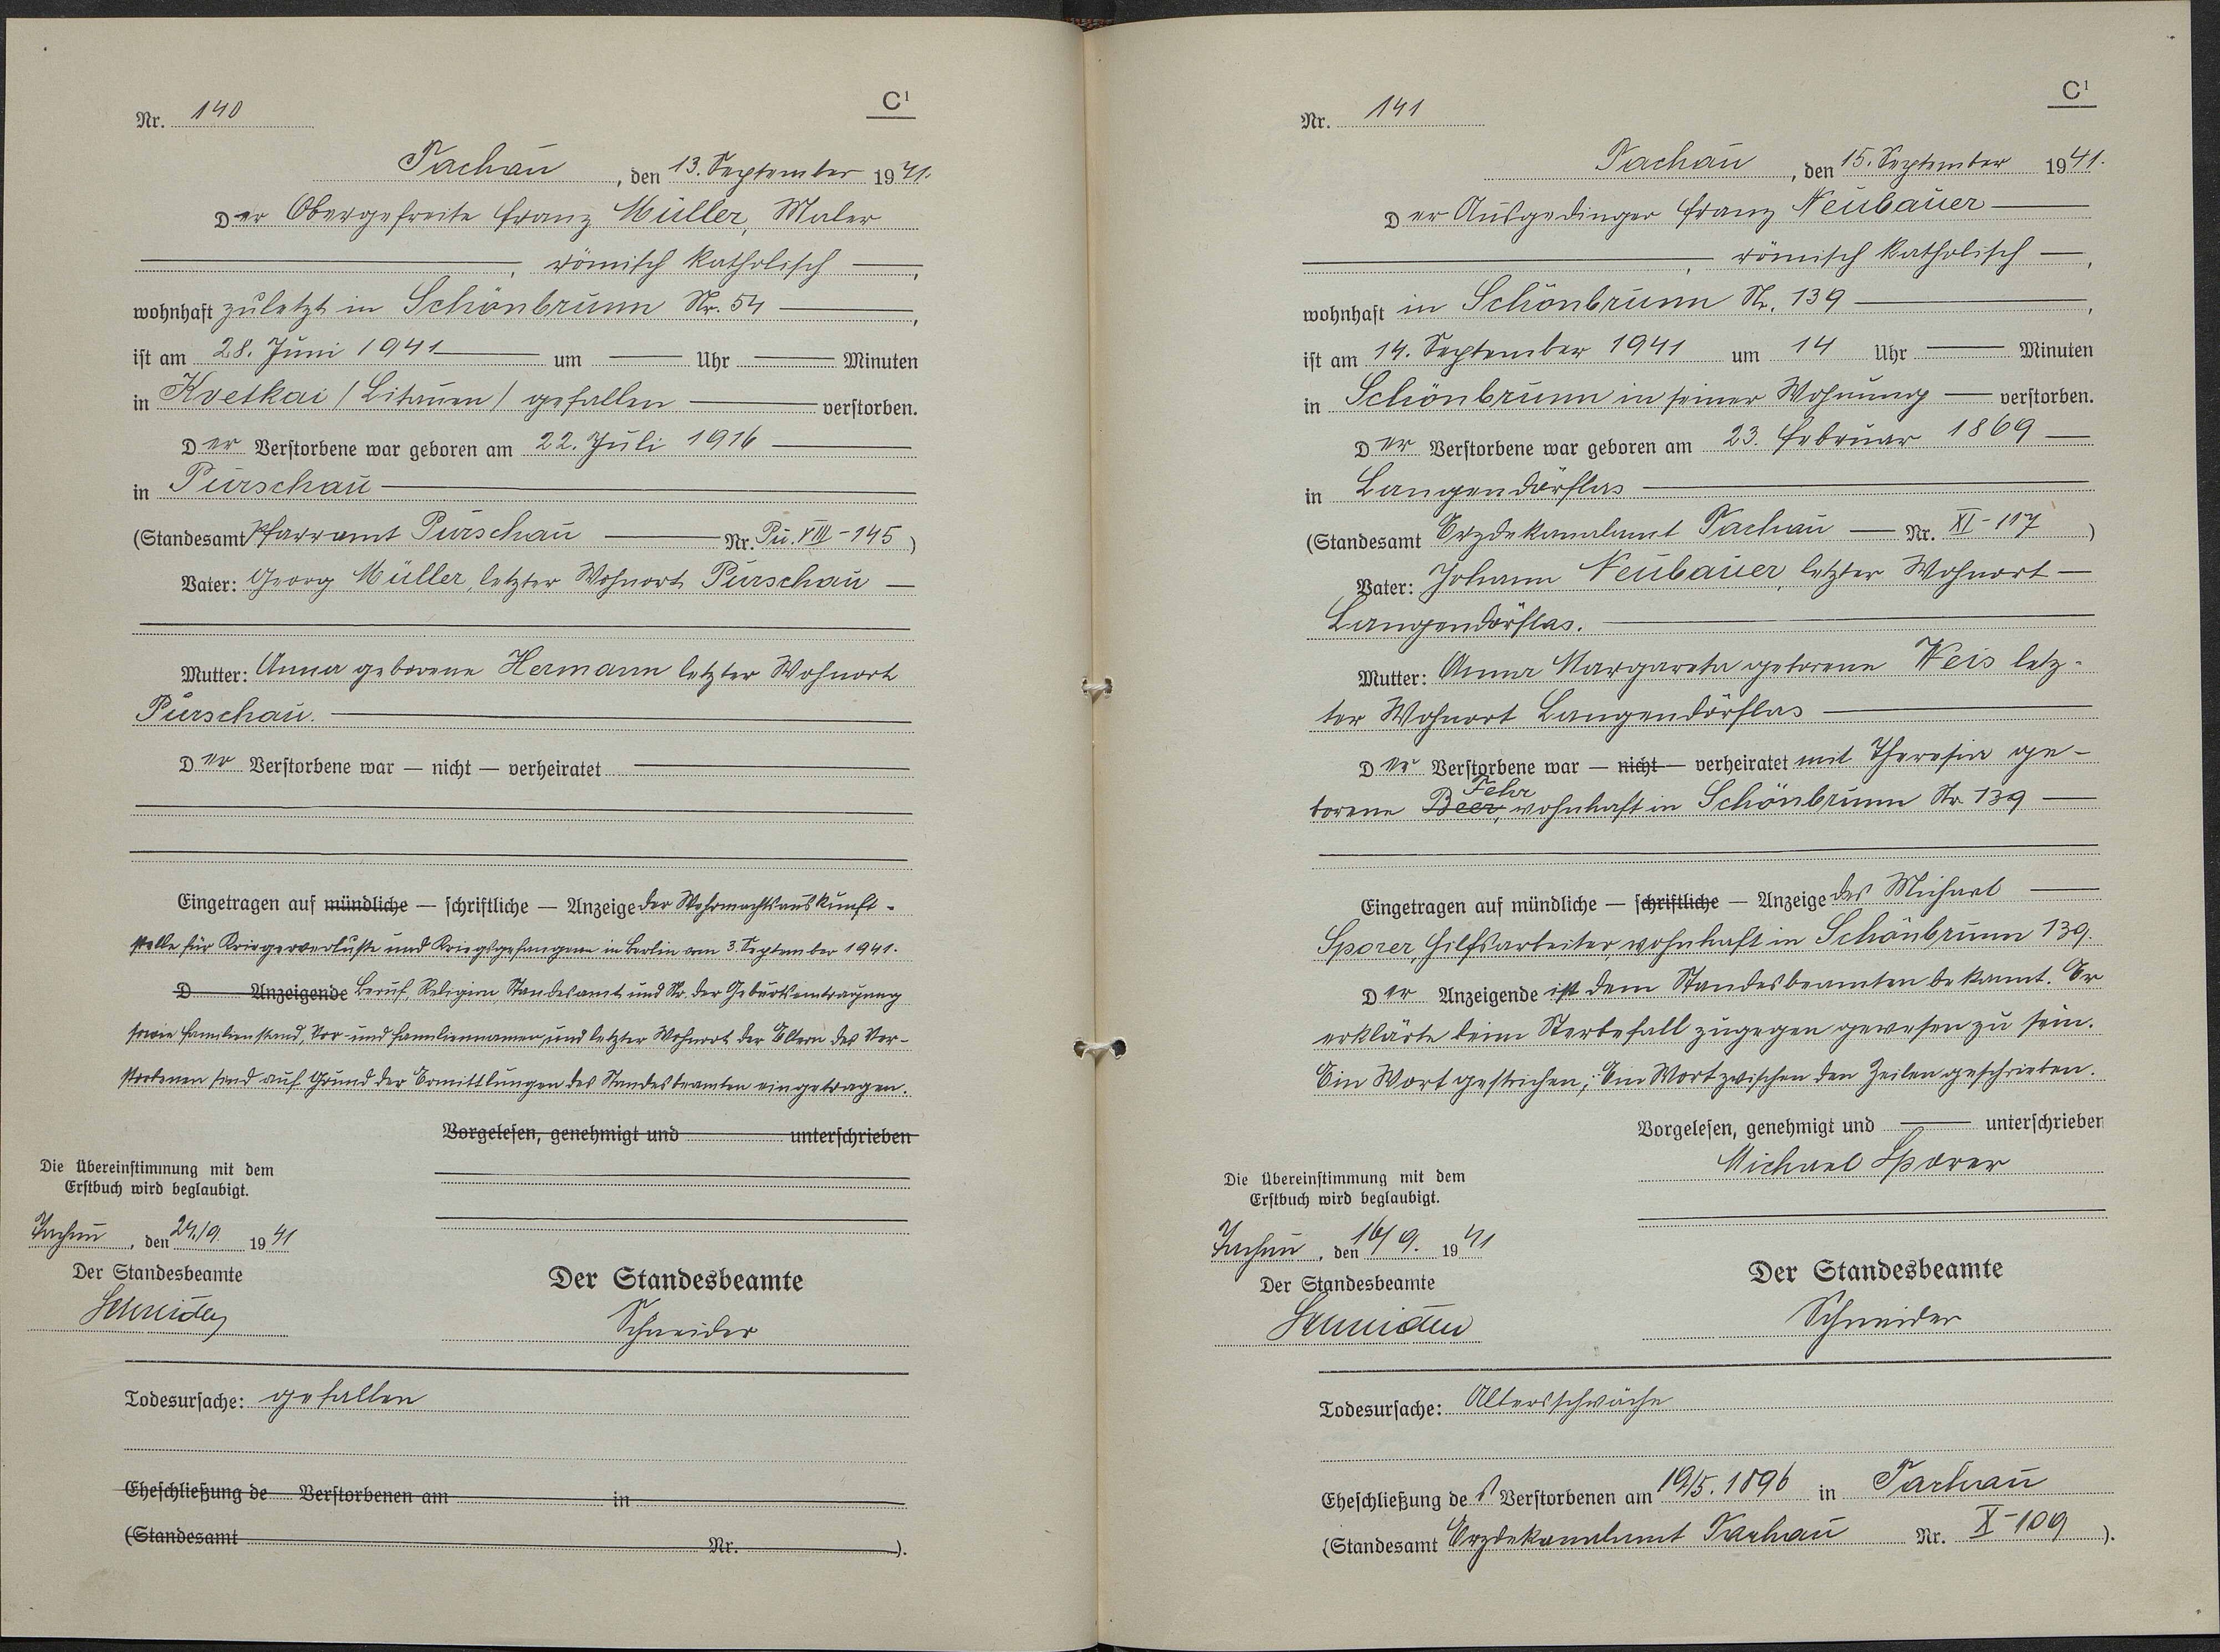 C¹
Nr. 140
Tachau, den 13. September 1941.
Der Obergefreite Franz Müller, Maler
, römisch katholisch ,
wohnhaft zuletzt in Schönbrunn Nr. 54 ,
ist am 28. Juni 1941 um Uhr Minuten
in Kvetkai /Litauen/ gefallen verstorben.
Der Verstorbene war geboren am 22. Juli 1916
in Purschau
(Standesamt Pfarramt Purschau Nr. Pu. VIII-145)
Vater: Georg Müller, letzter Wohnort Purschau
Mutter: Anna geborene Hermann letzter Wohnort
Purschau.
Der Verstorbene war — nicht — verheiratet
Eingetragen auf mündliche — schriftliche — Anzeige der Wehrmachtsauskunft-
stelle für Kriegerverluste und Kriegsgefangene in Berlin vom 3. September 1941.
D Anzeigende Beruf, Religion, Standesamt und Nr. der Geburtseintragung
sowie Familienstand, Vor- und Familiennamen und letzter Wohnort der Eltern des Ver-
storbenen sind auf Grund der Ermittlungen des Standesbeamten eingetragen.
Vorgelesen, genehmigt und unterschrieben
Die Übereinstimmung mit dem
Erstbuch wird beglaubigt.
Tachau, den 24./9. 1941
Der Standesbeamte
Schneider
Der Standesbeamte
Schneider
Todesursache: gefallen
Eheschließung de Verstorbenen am in
(Standesamt Nr. ).
C¹
Nr. 141
Tachau, den 15. September 1941.
Der Ausgedinger Franz Neubauer
, römisch katholisch ,
wohnhaft in Schönbrunn Nr. 139 ,
ist am 14. September 1941 um 14 Uhr Minuten
in Schönbrunn in seiner Wohnung verstorben.
Der Verstorbene war geboren am 23. Februar 1869
in Langendörflas
(Standesamt Erzdekanalamt Tachau Nr. XI-117)
Vater: Johann Neubauer, letzter Wohnort
Langendörflas.
Mutter: Anna Margareta geborene Weis letz-
ter Wohnort Langendörflas
Der Verstorbene war — nicht — verheiratet mit Theresia ge-
Fehr
borene Beer, wohnhaft in Schönbrunn Nr. 139
Eingetragen auf mündliche — schriftliche — Anzeige des Michael
Sporer, Hilfsarbeiter, wohnhaft in Schönbrunn 139.
Der Anzeigende ist dem Standesbeamten bekannt. Er
erklärte beim Sterbefall zugegen gewesen zu sein.
Ein Wort gestrichen; Ein Wort zwischen den Zeilen geschrieben.
Vorgelesen, genehmigt und unterschrieben
Michael Sporer
Die Übereinstimmung mit dem
Erstbuch wird beglaubigt.
Tachau, den 16/9. 1941
Der Standesbeamte
Schneider
Der Standesbeamte
Schneider
Todesursache: Altersschwäche
Eheschließung des Verstorbenen am 19/5. 1896 in Tachau
(Standesamt Erzdekanalamt Tachau Nr. X-109).